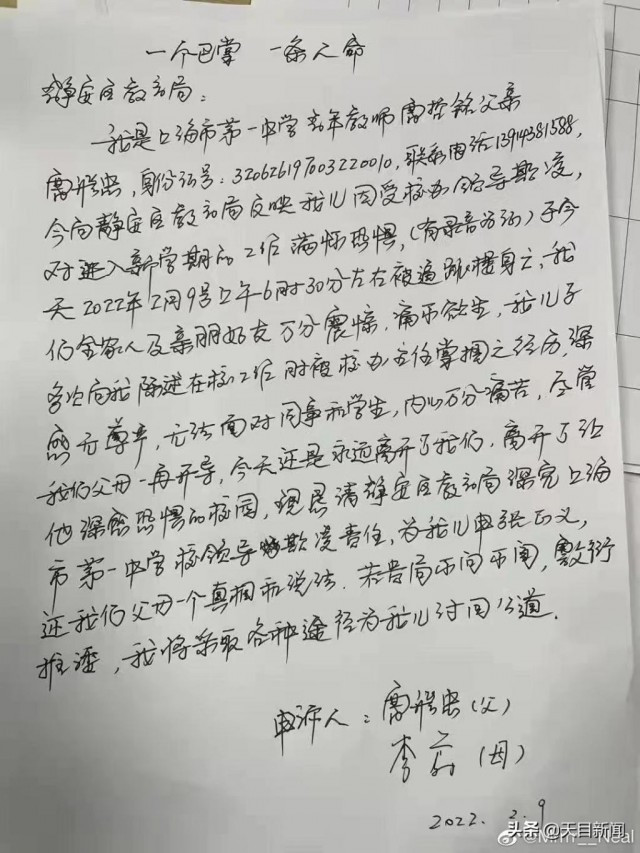 一个巴掌 一条人命
静安区教育局：
我是上海市第一中学青年教师 父亲
身份证号：320626197003220010，联系电话：13914381588，
今向静安区教育局反映我儿因受校办领导欺凌，
对进入新学期的工作满怀恐惧，(有录音为证)于今
天2022年2月9号上午6时30分左右被逼跳楼身亡，我
们全家人及亲朋好友万分震惊，痛不欲生，我儿子
多次向我 在校工作时被校办主任掌掴之经历，深
感无尊严，无法面对同事和学生，内心万分痛苦，尽管
我们父母一再开导，今天还是永远离开了我们，离开了让
他深感恐惧的校园，现恳请静安区教育局深究上海
市第一中学校领导欺凌责任，为我儿申张正义，
还我们父母一个真相和说法。若贵局不问不闻，敷衍
推诿，我将采取各种途径为我儿讨回公道。
申诉人： (父)
李 (母)
2022.2.9
头条@天目新闻